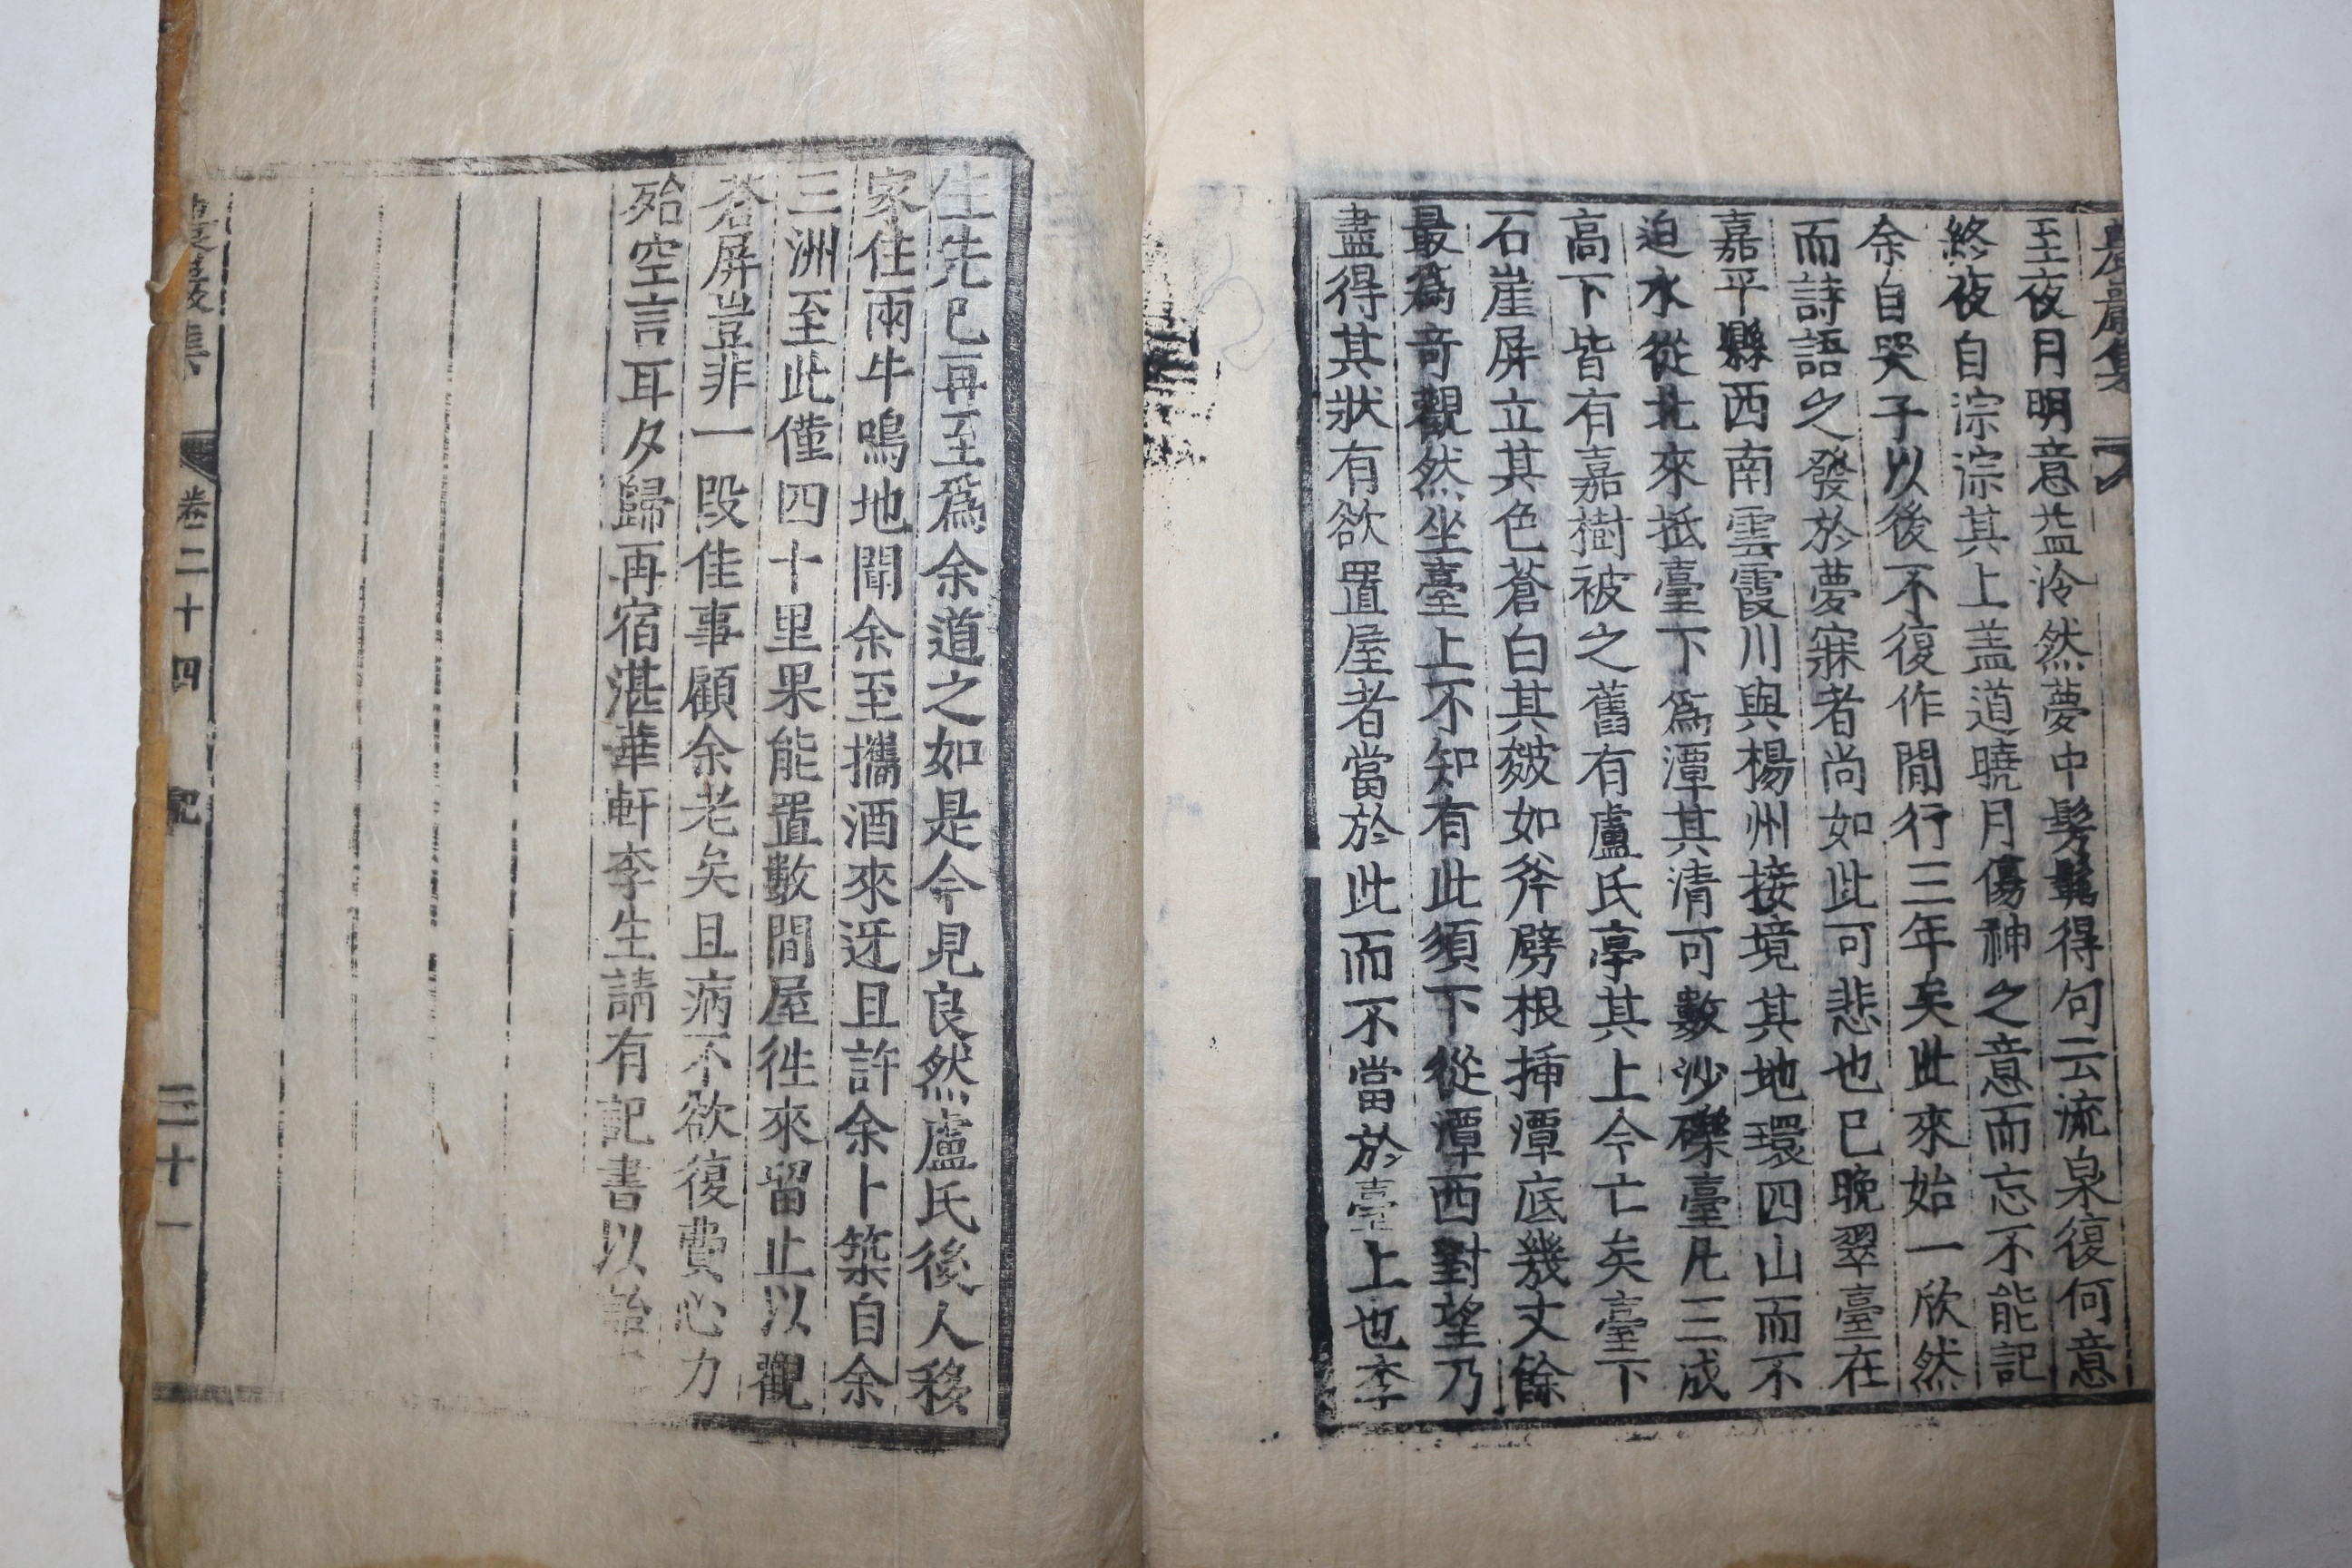 至夜月明意益泠然夢中髣髴得句云流泉復何意
終夜自淙淙其上盖道曉月傷神之意而忘不能記
余自哭子以後不復作閒行三年矣此來始一欣然
而詩語之發於夢寐者尚如此可悲也已晩翠臺在
嘉平縣西南雲霞川與楊州接境其地環四山而不
迫水從北來抵臺下爲潭其清可數沙礫臺凡三成
高下皆有嘉樹被之舊有盧氏亭其上今亡矣臺下
石崖屏立其色蒼白其皴如斧劈根揷潭底幾丈餘
最爲奇觀然坐臺上不知有此須下從潭西對望乃
盡得其狀有欲置屋者當於此而不當於臺上也李
生先已再至爲余道之如是今見良然盧氏後人移
家住兩牛鳴地聞余至攜酒來迓且許余卜築自余
三洲至此僅四十里果能置數間屋徃來留止以觀
蒼屏豈非一段佳事顧余老矣且病不欲復費心力
殆空言耳夕歸再宿湛華軒李生請有記書以
農巖集
卷二十四
記
三十一